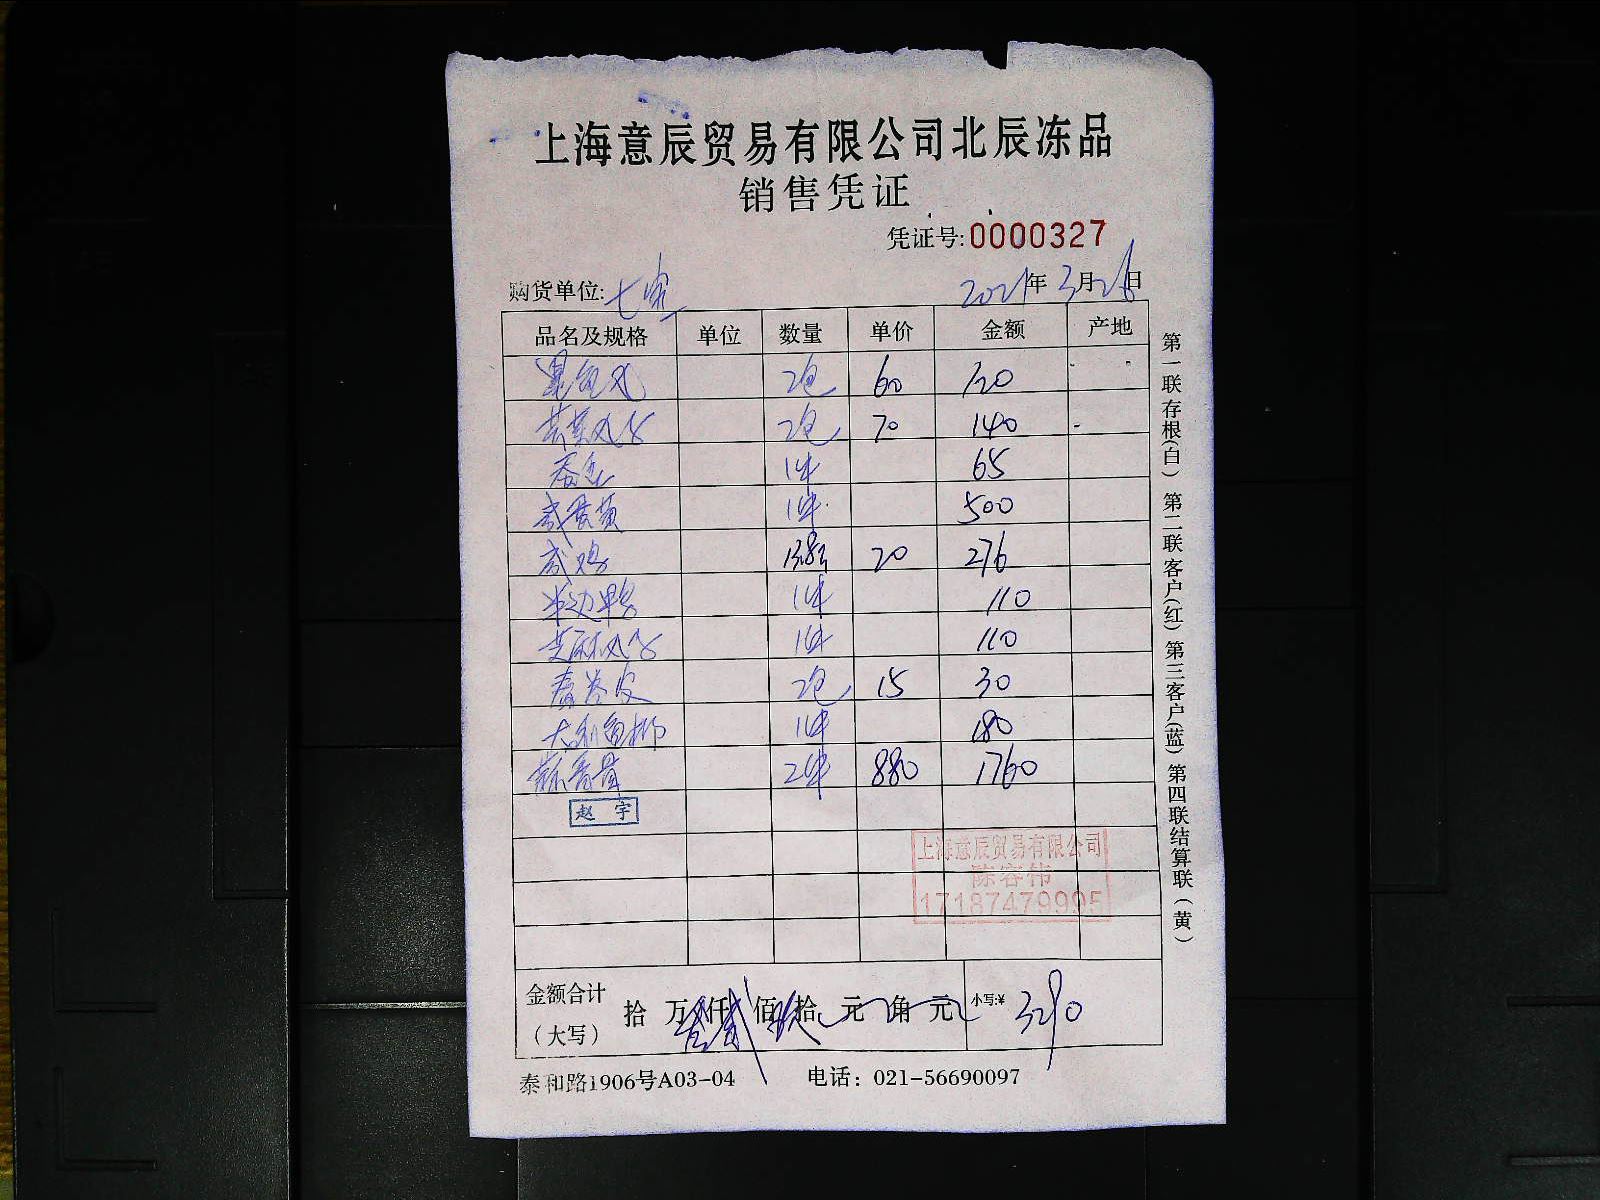 上海意辰贸易有限公司北辰冻品
销售凭证
凭证号:0000327
购货单位:七宝 2021年3月26日
品名及规格 单位 数量 单价 金额 产地
墨鱼丸 2包 60 120
2包 70 140
1件 65
咸蛋黄 1件 500
咸鸡 13.8 20 276
半边鸭 1件 110
芝麻 1件 110
春卷皮 2包 15 30
1件 180
2件 880 1760
赵宇
上海意辰贸易有限公司
陈容伟
17187479995
金额合计(大写) 拾 万 仟 佰 拾 元 角 元 小写:¥ 3290
泰和路1906号A03-04 电话：021-56690097
第一联存根(白) 第二联客户(红) 第三客户(蓝) 第四联结算联(黄)